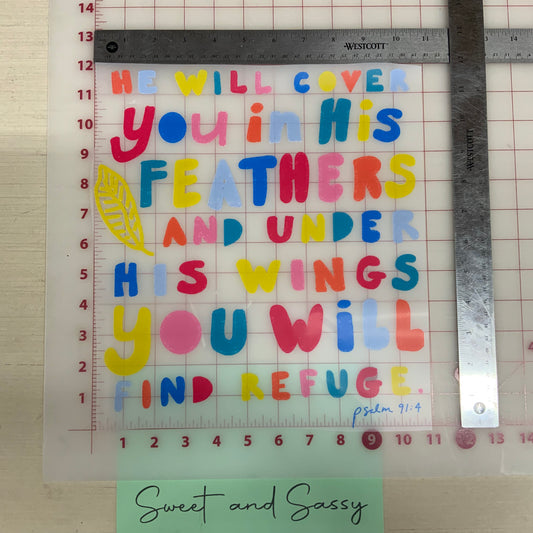 14
13
12
11
10
9
8
7
6
5
4
3
2
WESTCOTT
WESTCOTT
HE WILL COVER
you in His
FEATHERS
AND UNDER
HIS WINGS
YOU WiLL
FIND REFUGE.
psalm 91:4
1 2 3 4 5 6 7 8 9 10 11 12 13 14
Sweet and Sassy